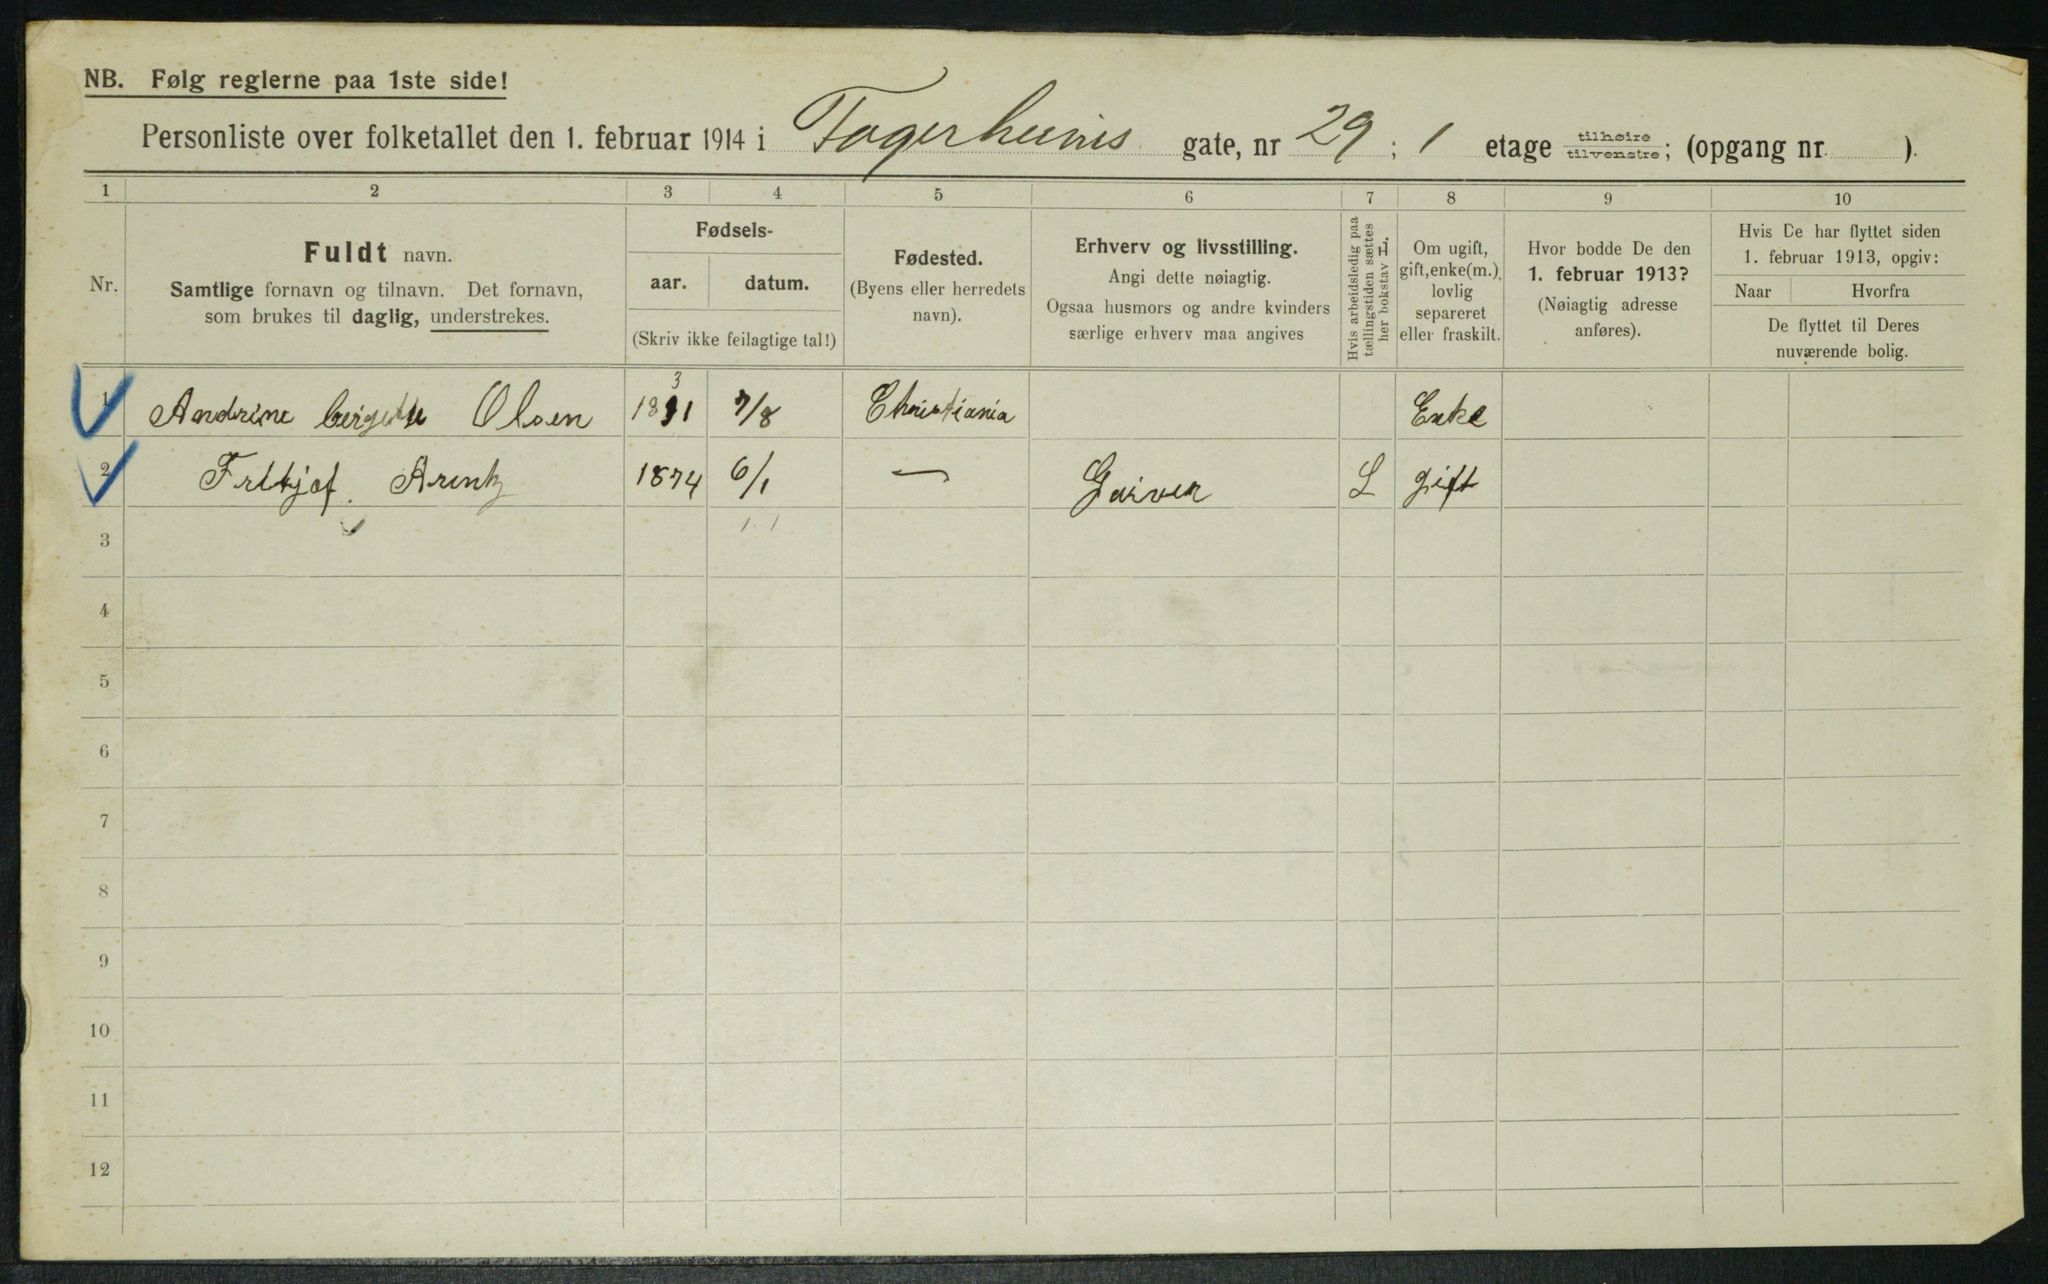 NB. Følg reglerne paa 1ste side!
Personliste over folketallet den 1. februar 1914 i Fagerheims gate, nr 29 ; 1 etage tilhøire tilvenstre ; (opgang nr. ).
1 2 3 4 5 6 7 8 9 10
Nr.
Fuldt navn.
Samtlige fornavn og tilnavn. Det fornavn,
som brukes til daglig, understrekes.
Fødsels-
aar. datum.
(Skriv ikke feilagtige tal!)
Fødested.
(Byens eller herredets
navn).
Erhverv og livsstilling.
Angi dette nøiagtig.
Ogsaa husmors og andre kvinders
særlige erhverv maa angives
Hvis arbeidsledig paa
tællingstiden sættes
her bokstav L.
Om ugift,
gift, enke(m.),
lovlig
separeret
eller fraskilt.
Hvor bodde De den
1. februar 1913?
(Nøiagtig adresse
anføres).
Hvis De har flyttet siden
1. februar 1913, opgiv:
Naar Hvorfra
De flyttet til Deres
nuværende bolig.
1 Andrine bergette Olsen 1831 7/8 Christiania Enke
2 Fritjof Arentz 1874 6/1 — Garver L gift
3
4
5
6
7
8
9
10
11
12